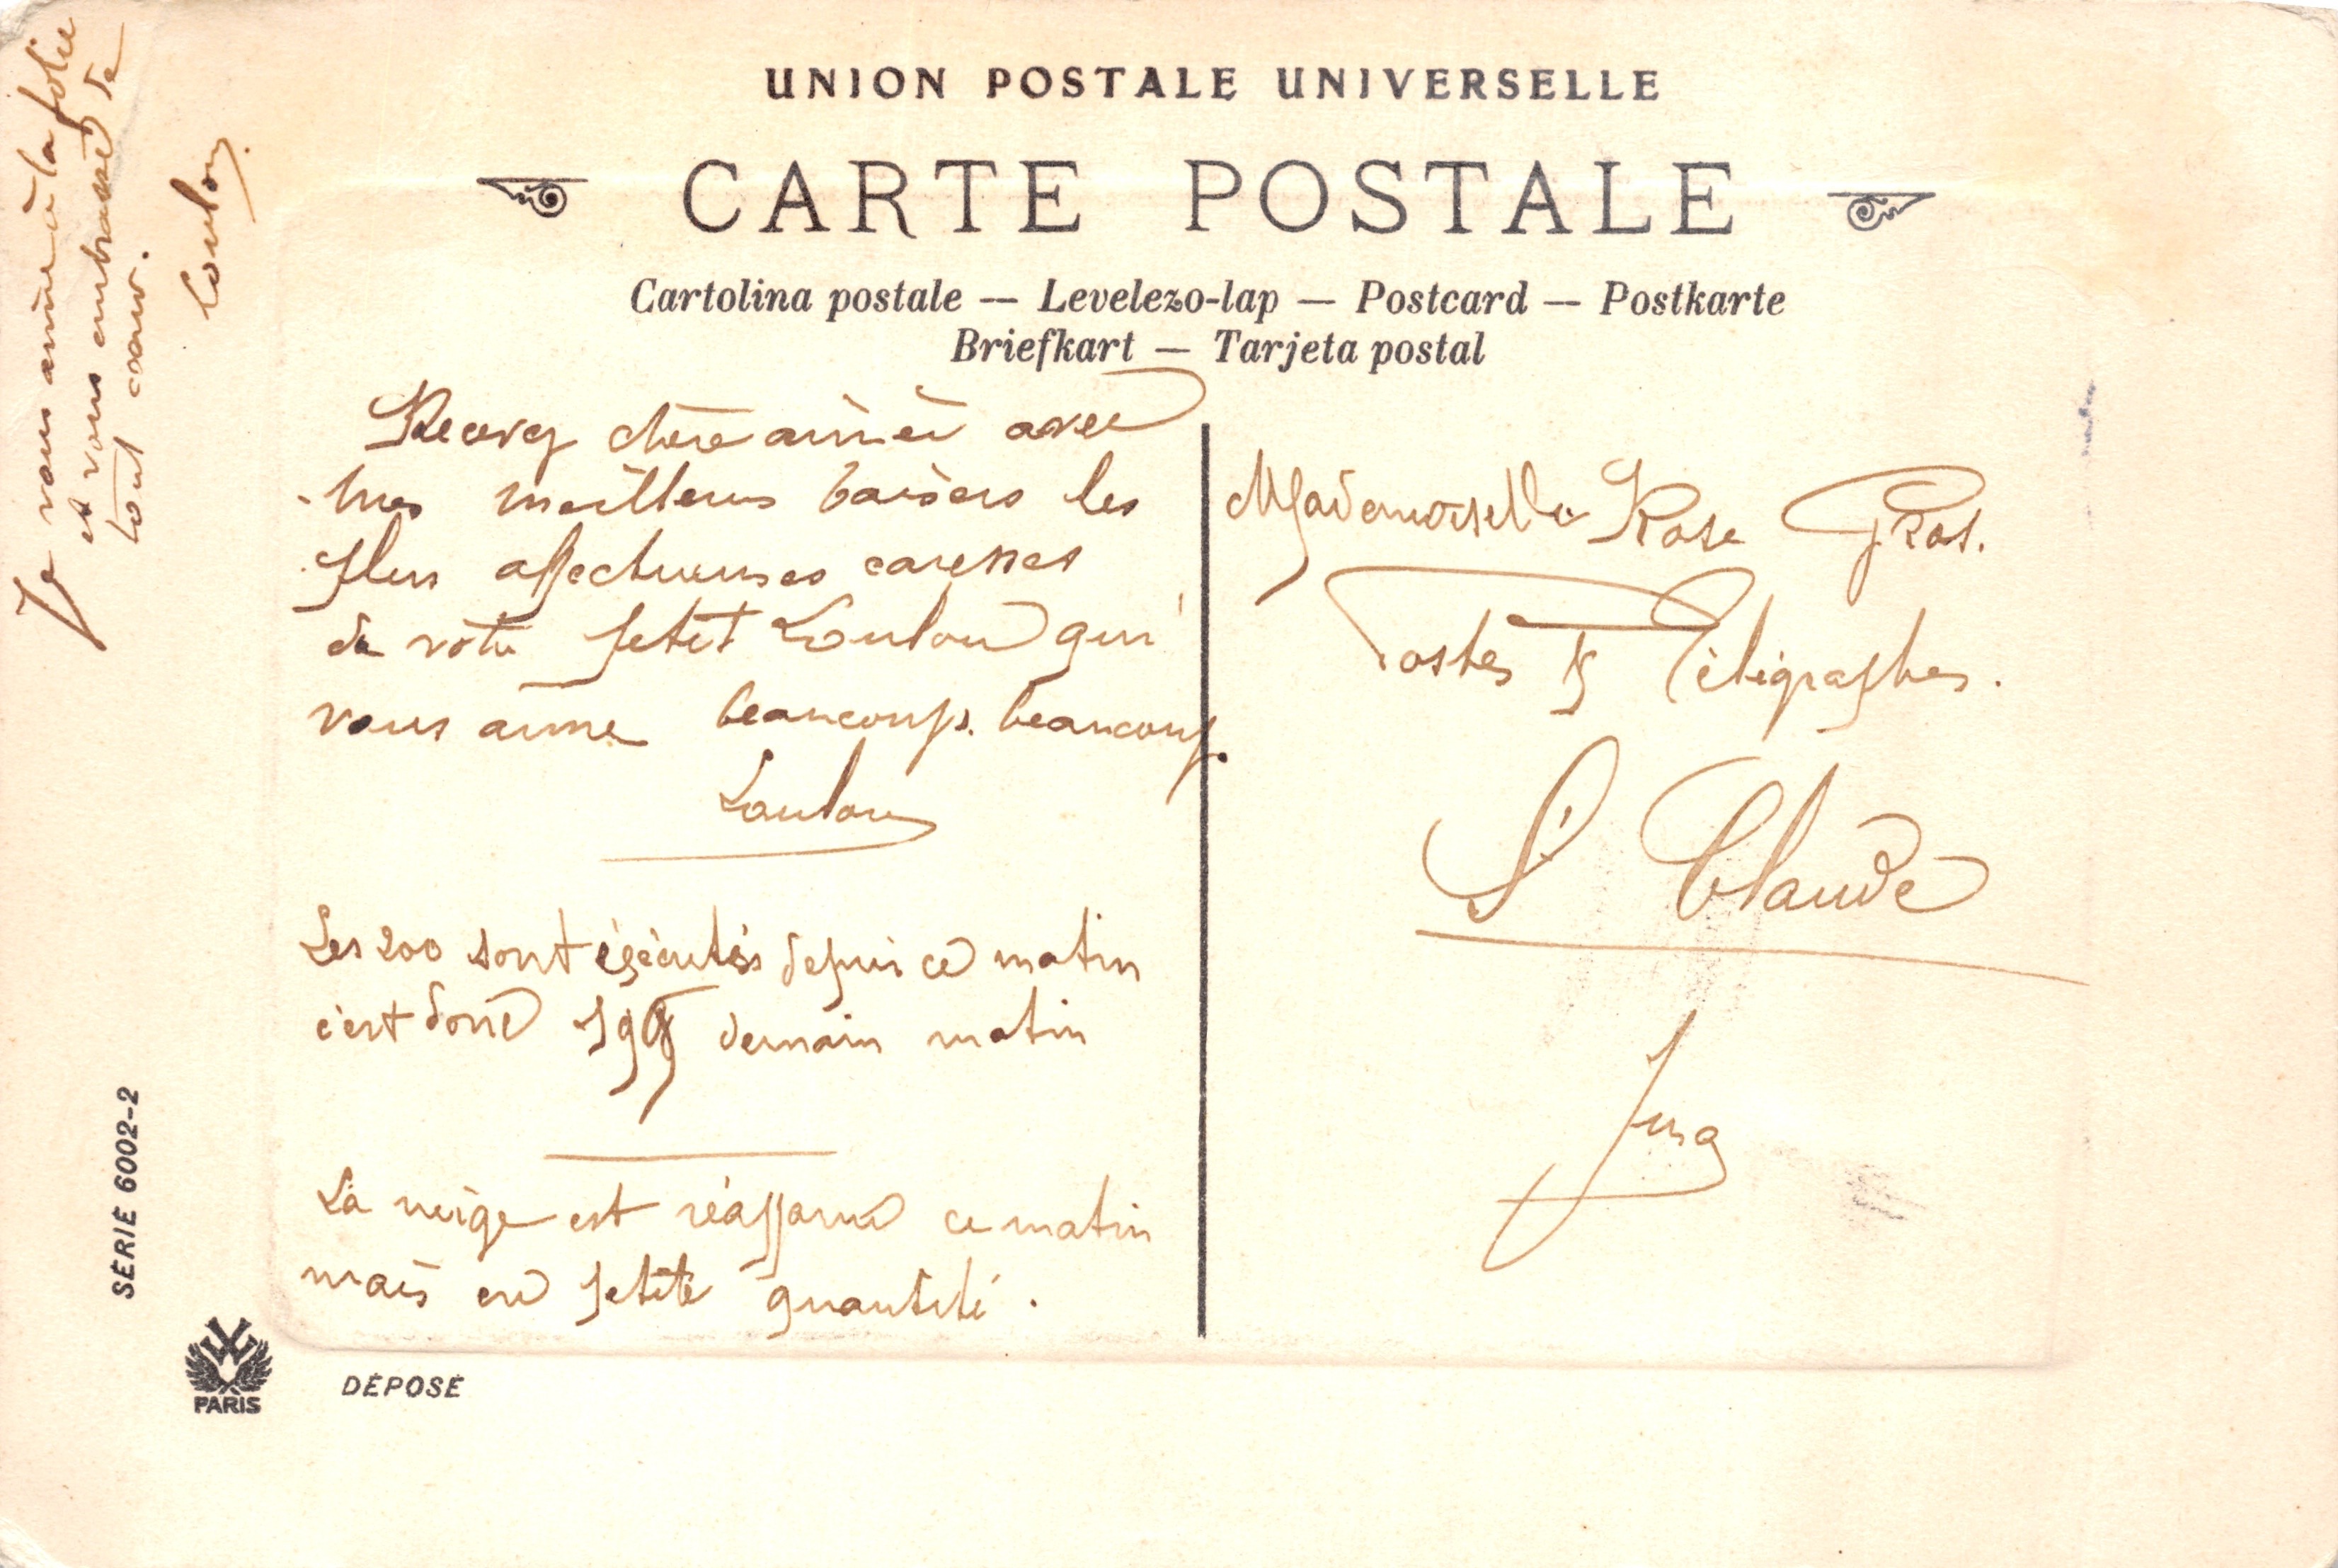 UNION POSTALE UNIVERSELLE
CARTE POSTALE
Cartolina postale — Levelezo-lap — Postcard — Postkarte
Briefkart — Tarjeta postal
Je vous aime à la folie
et vous embrasse de
tout cœur.
Loulou
Recevez chère aimée avec
mes meilleurs baisers les
plus affectueuses caresses
de votre petit Loulou qui
vous aime beaucoup. beaucoup.
Loulou
Les 200 sont égécutés depuis ce matin
c'est donc demain matin
La neige est réapparue ce matin
mais en petite quantité.
Mademoiselle Rose Gros.
Postes & Télégraphes.
St Claude
Jura
SÉRIE 6002-2
PARIS
DÉPOSÉ